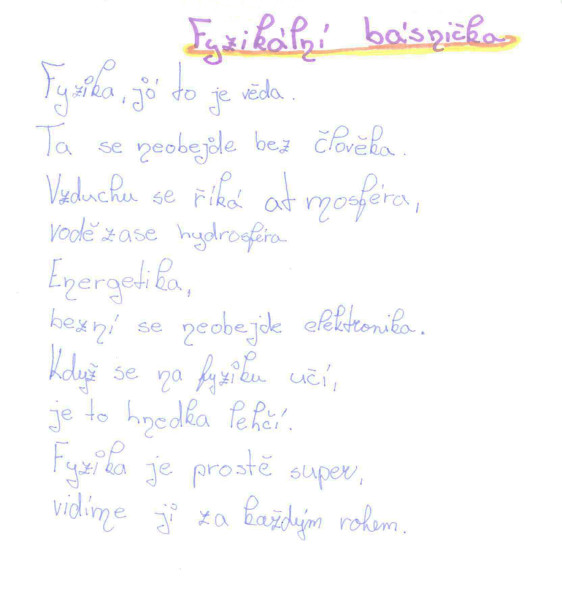 Fyzikální básnička
Fyzika, jó to je věda.
Ta se neobejde bez člověka.
Vzduchu se říká atmosféra,
vodě zase hydrosféra
Energetika,
bezní se neobejde elektronika.
Když se na fyziku učí,
je to hnedka lehčí.
Fyzika je prostě super,
vidíme jí za každým rohem.